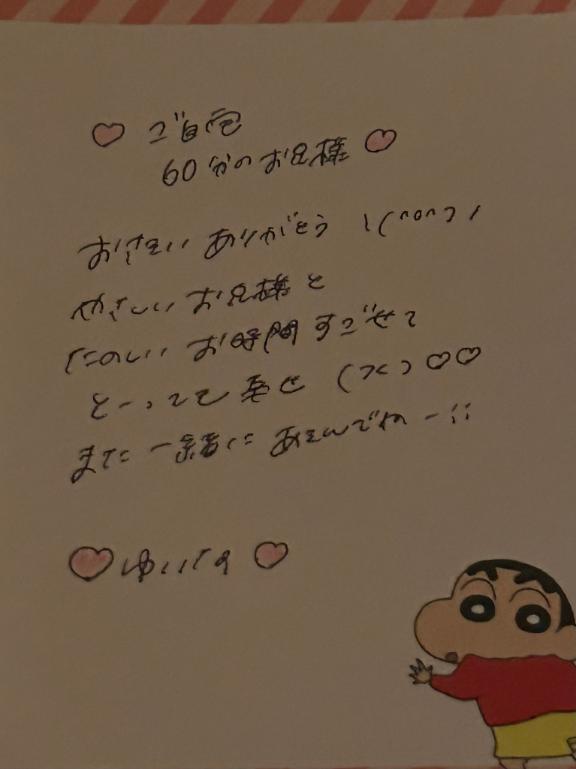 ♡ ご自宅
60分のお兄様 ♡
おさそい ありがとう \(^o^)/
やさしい お兄様と
たのしい お時間 すごせて
とーっても 幸せ (>< ) ♡♡
また 一緒に あそんでねー!!
♡ ゆいな ♡